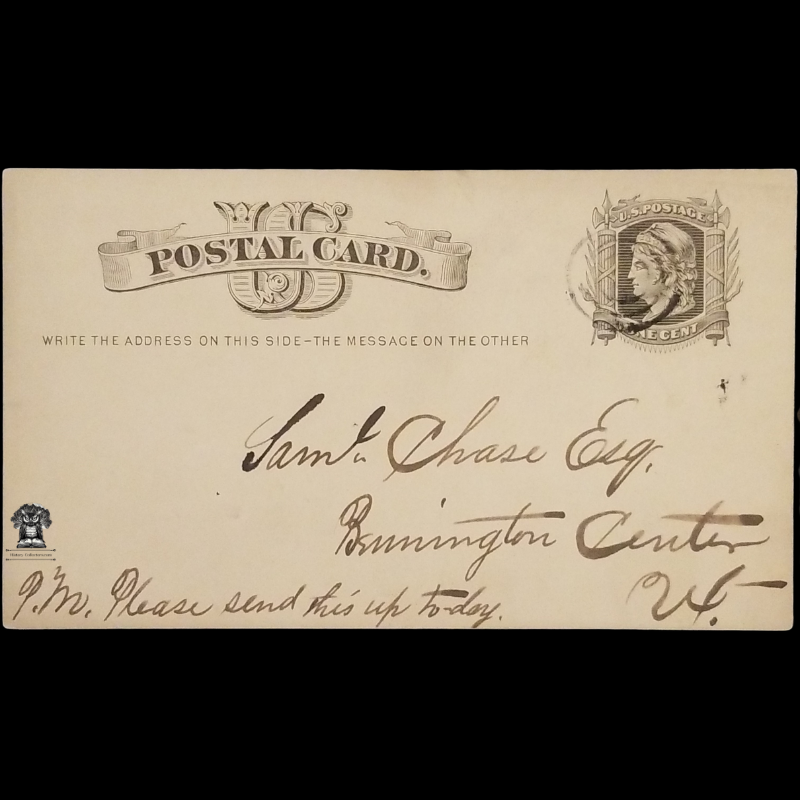 US
POSTAL CARD.
WRITE THE ADDRESS ON THIS SIDE–THE MESSAGE ON THE OTHER
U.S. POSTAGE
ONE CENT
Saml. Chase Esq.
Bennington Center
Vt.
P.M. Please send this up to-day.